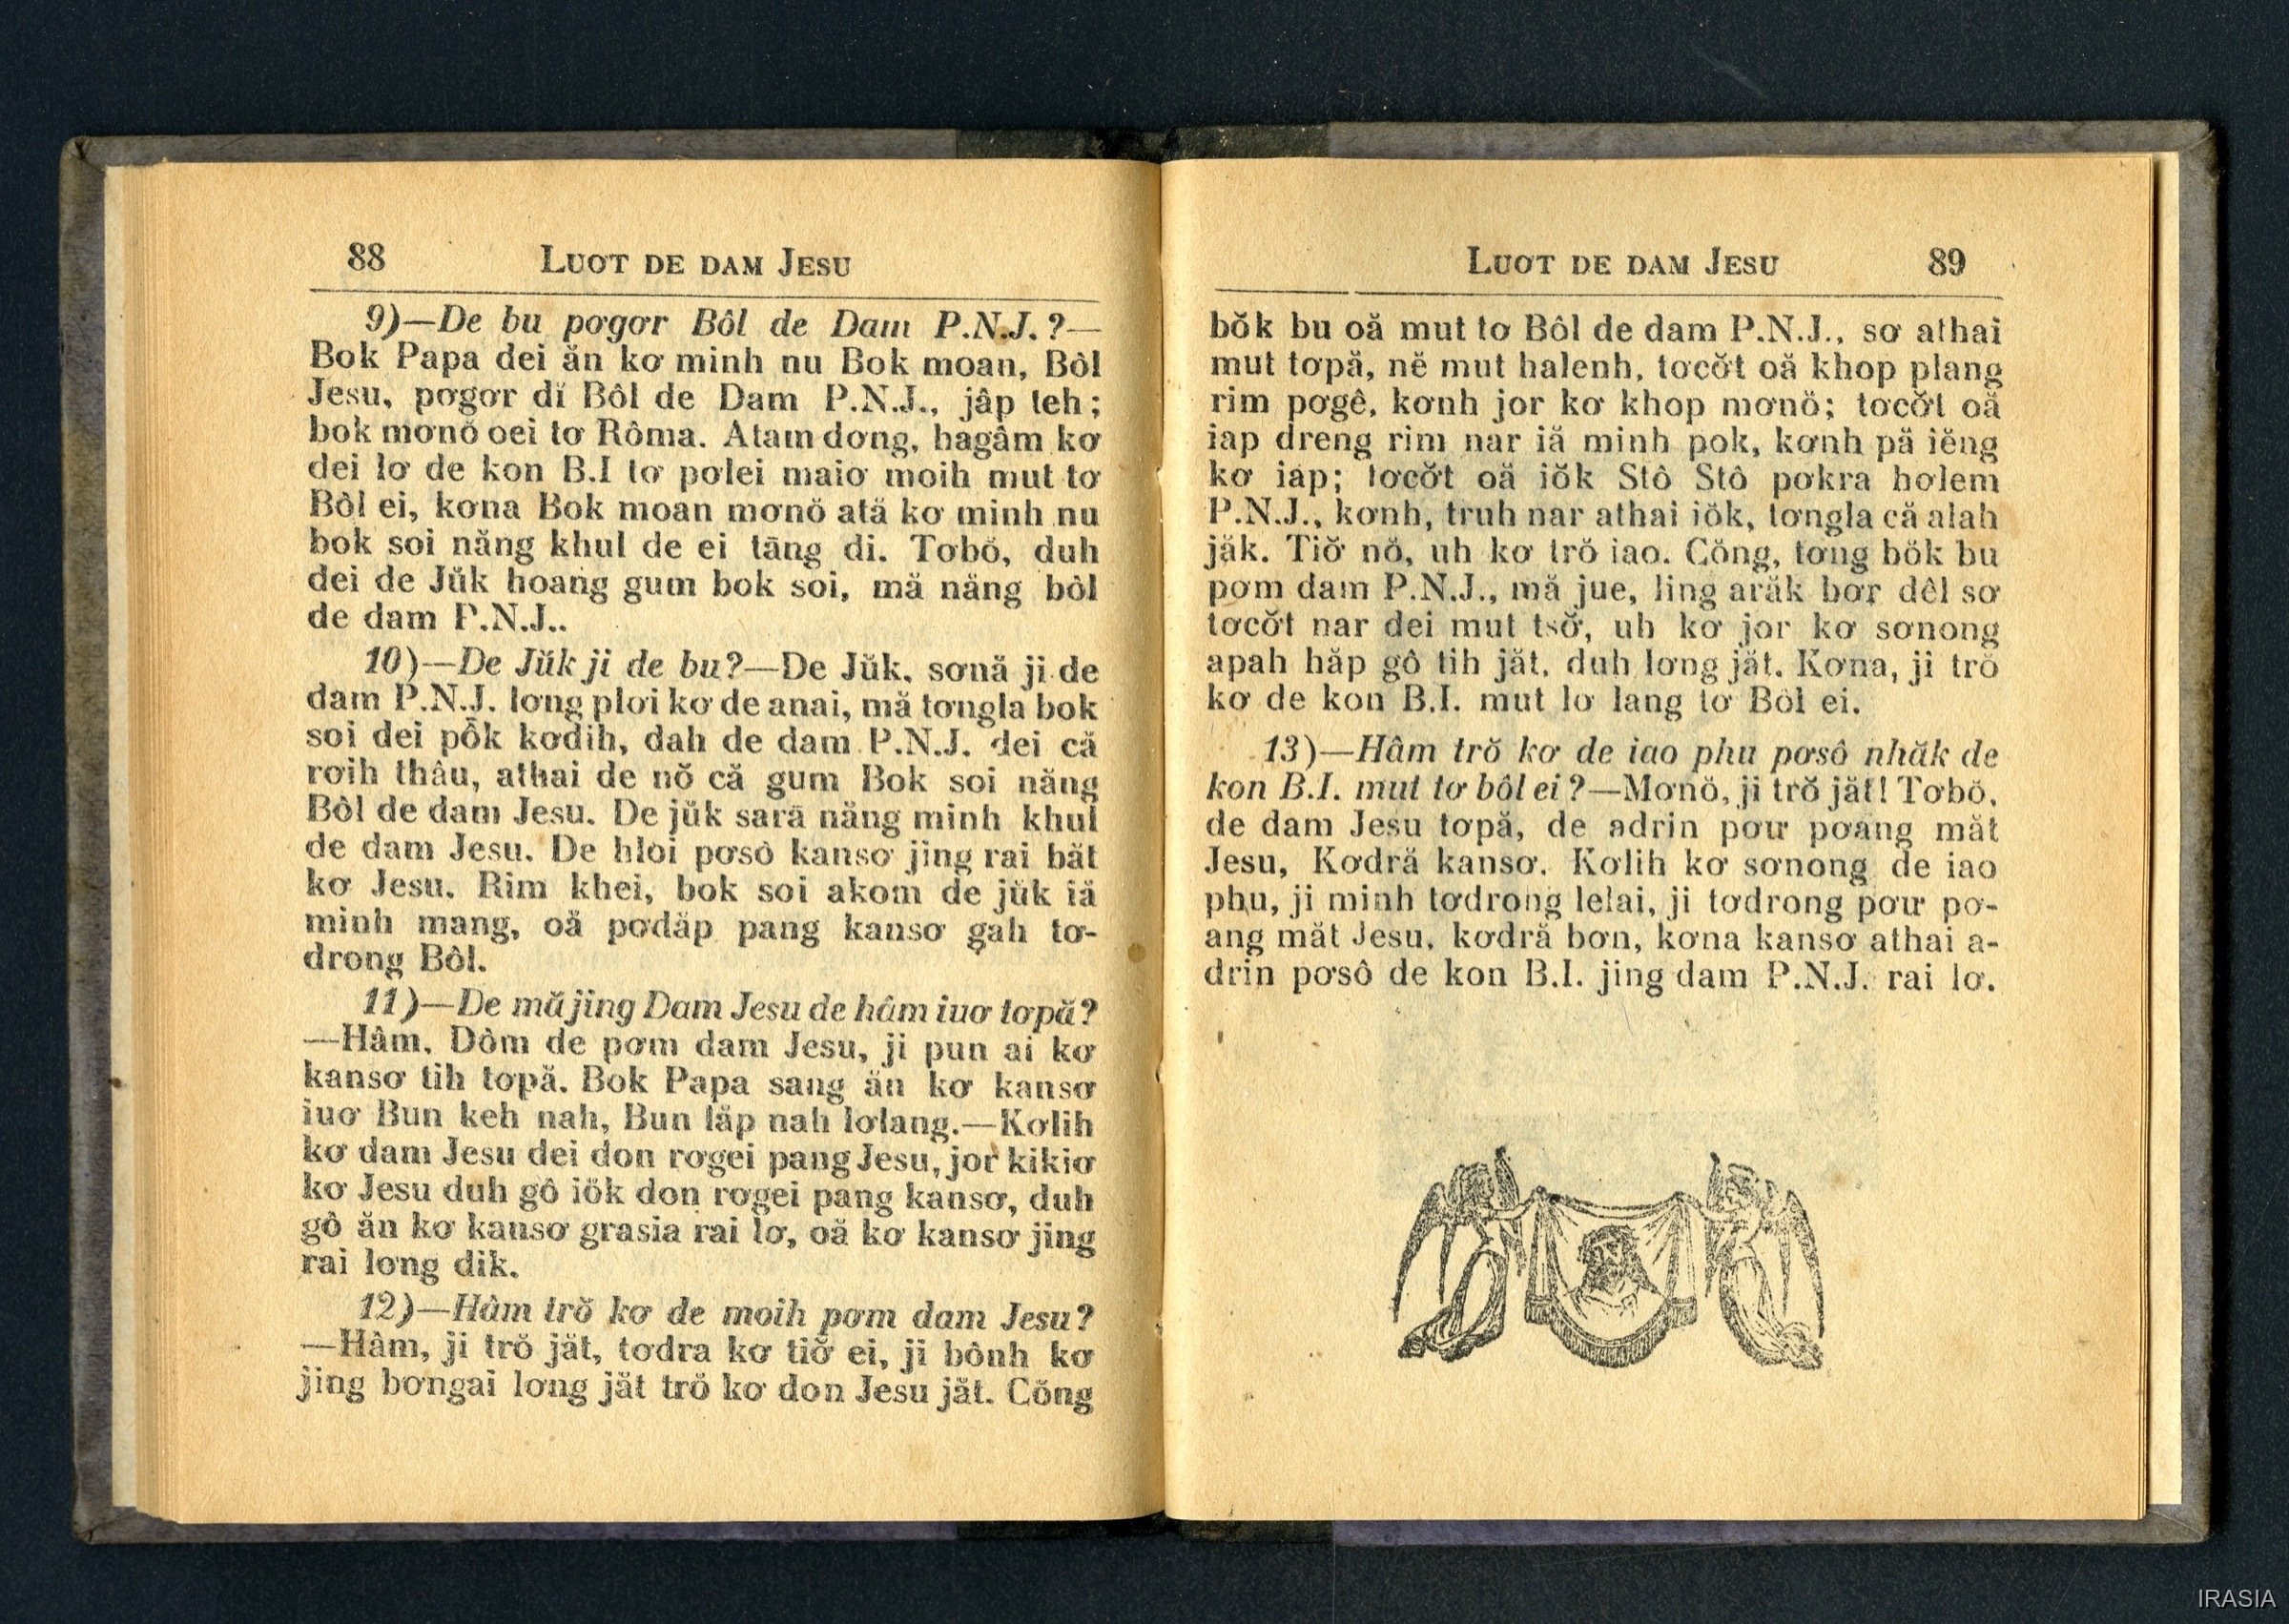 88 LUƠT DE DAM JESU
9)—De bu pơgơr Bôl de Dam P.N.J.?—
Bok Papa dei ăn kơ minh nu Bok moan, Bôl
Jesu, pơgơr dĭ Bôl de Dam P.N.J., jâp teh;
bok mơnŏ oei tơ Rôma. Atam dơng, hagâm kơ
dei lơ de kon B.I tơ pơlei maiơ moih mut tơ
Bôl ei, kơna Bok moan mơnŏ ată kơ minh nu
bok soi năng khul de ei tăng di. Tơbŏ, duh
dei de Jŭk hoang gum bok soi, mă năng bôl
de dam P.N.J..
10)—De Jŭk ji de bu?—De Jŭk, sơnă ji de
dam P.N.J. lơng plơi kơ de anai, mă tơngla bok
soi dei pôk kơdih, dah de dam P.N.J. dei că
rơih thâu, athai de nŏ că gum Bok soi năng
Bôl de dam Jesu. De jŭk sară năng minh khul
de dam Jesu. De hloi pơsô kansơ jing rai băt
kơ Jesu. Rim khei, bok soi akom de jŭk iă
minh mang, oă pơdăp pang kansơ gah tơ-
drong Bôl.
11)—De mă jing Dam Jesu de hâm iuơ tơpă?
—Hâm. Dôm de pơm dam Jesu, ji pun ai kơ
kansơ tih tơpă. Bok Papa sang ăn kơ kansơ
iuơ Bun keh nah, Bun lăp nah lơlang.—Kơlih
kơ dam Jesu dei don rơgei pang Jesu, jor kikiơ
kơ Jesu duh gô iŏk don rơgei pang kansơ, duh
gô ăn kơ kansơ grasia rai lơ, oă kơ kansơ jing
rai lơng dik.
12)—Hâm trŏ kơ de moih pơm dam Jesu?
—Hâm, ji trŏ jăt, tơdra kơ tiơ̆ ei, ji bônh kơ
jing bơngai lơng jăt trŏ kơ don Jesu jăt. Cŏng
LUƠT DE DAM JESU 89
bŏk bu oă mut tơ Bôl de dam P.N.J., sơ athai
mut tơpă, nĕ mut halenh, tơcơ̆t oă khop plang
rim pơgê, kơnh jor kơ khop mơnŏ; tơcơ̆t oă
iap dreng rim nar iă minh pok, kơnh pă iĕng
kơ iap; tơcơ̆t oă iŏk Stô Stô pơkra hơlem
P.N.J., kơnh, truh nar athai iŏk, tơngla că alah
jăk. Tiơ̆ nŏ, uh kơ trŏ iao. Cŏng, tơng bŏk bu
pơm dam P.N.J., mă jue, ling arăk bơr dêl sơ
tơcơ̆t nar dei mut tsơ̆, uh kơ jor kơ sơnong
apah hăp gô tih jăt, duh lơng jăt. Kơna, ji trŏ
kơ de kon B.I. mut lơ lang tơ Bôl ei.
13)—Hâm trŏ kơ de iao phu pơsô nhăk de
kon B.I. mut tơ bôl ei?—Mơnŏ, ji trŏ jăt! Tơbŏ,
de dam Jesu tơpă, de adrin pơư pơang măt
Jesu, Kơdră kansơ. Kơlih kơ sơnong de iao
phu, ji minh tơdrong lelai, ji tơdrong pơư pơ-
ang măt Jesu, kơdră bơn, kơna kansơ athai a-
drin pơsô de kon B.I. jing dam P.N.J. rai lơ.
IRASIA